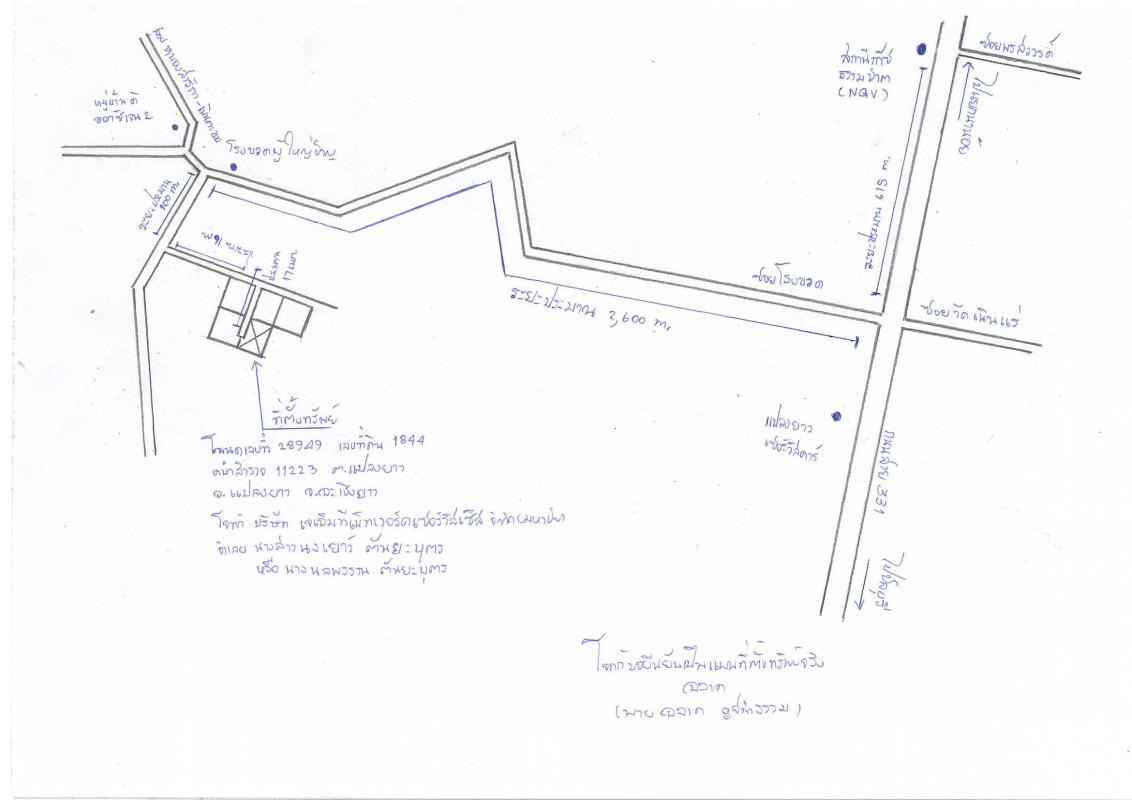 สถานีก๊าซ
ธรรมชาติ
(NGV)
ซอยพรสวรรค์
หมู่บ้าน ดิ
ออกซิเจน 2
โรงขวดผู้ใหญ่ชาญ
ระยะประมาณ
ระยะประมาณ 615 m.
ประมาณ
17 เมตร
ซอยโรงขวด
ระยะประมาณ 2,600 m.
ซอยวัดเนินแร่
แปลงยาว
เซอร์วิสคาร์
ถนนสาย 331
ไปชลบุรี
ที่ตั้งทรัพย์
โฉนดเลขที่ 28949 เลขที่ดิน 1844
หน้าสำรวจ 11223 ต.แปลงยาว
อ.แปลงยาว จ.ฉะเชิงเทรา
โจทก์ บริษัท เจเอ็มที เน็ทเวอร์ค เซอร์วิสเซ็ส จำกัด (มหาชน)
จำเลย นางสาวนงเยาว์ ตันยะบุตร
หรือ นางนลพรรณ ตันยะบุตร
โจทก์ขอยืนยันเป็นแผนที่ตั้งทรัพย์จริง
ฉลาด